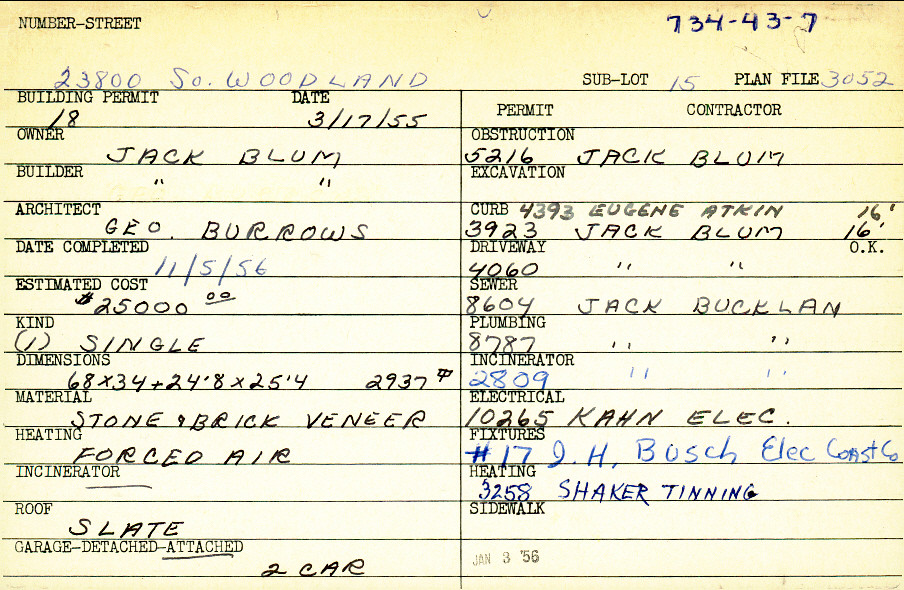 NUMBER-STREET
734-43-7
23800 So. WOODLAND SUB-LOT 15 PLAN FILE 3052
BUILDING PERMIT DATE
18 3/17/55
PERMIT CONTRACTOR
OWNER
JACK BLUM
OBSTRUCTION
5216 JACK BLUM
BUILDER
" "
EXCAVATION
ARCHITECT
GEO. BURROWS
CURB 4393 EUGENE ATKIN 16'
3923 JACK BLUM 16'
DATE COMPLETED
11/5/56
DRIVEWAY O.K.
4060 " "
ESTIMATED COST
$25000 00
SEWER
8604 JACK BUCKLAN
KIND
(1) SINGLE
PLUMBING
8787 " "
DIMENSIONS
68x34+24'8x25'4 2937
INCINERATOR
2809 " "
MATERIAL
STONE & BRICK VENEER
ELECTRICAL
10265 KAHN ELEC.
HEATING
FORCED AIR
FIXTURES
#17 J.H. Busch Elec Const Co
INCINERATOR
HEATING
3258 SHAKER TINNING
ROOF
SLATE
SIDEWALK
GARAGE-DETACHED-ATTACHED
2 CAR
JAN 3 '56